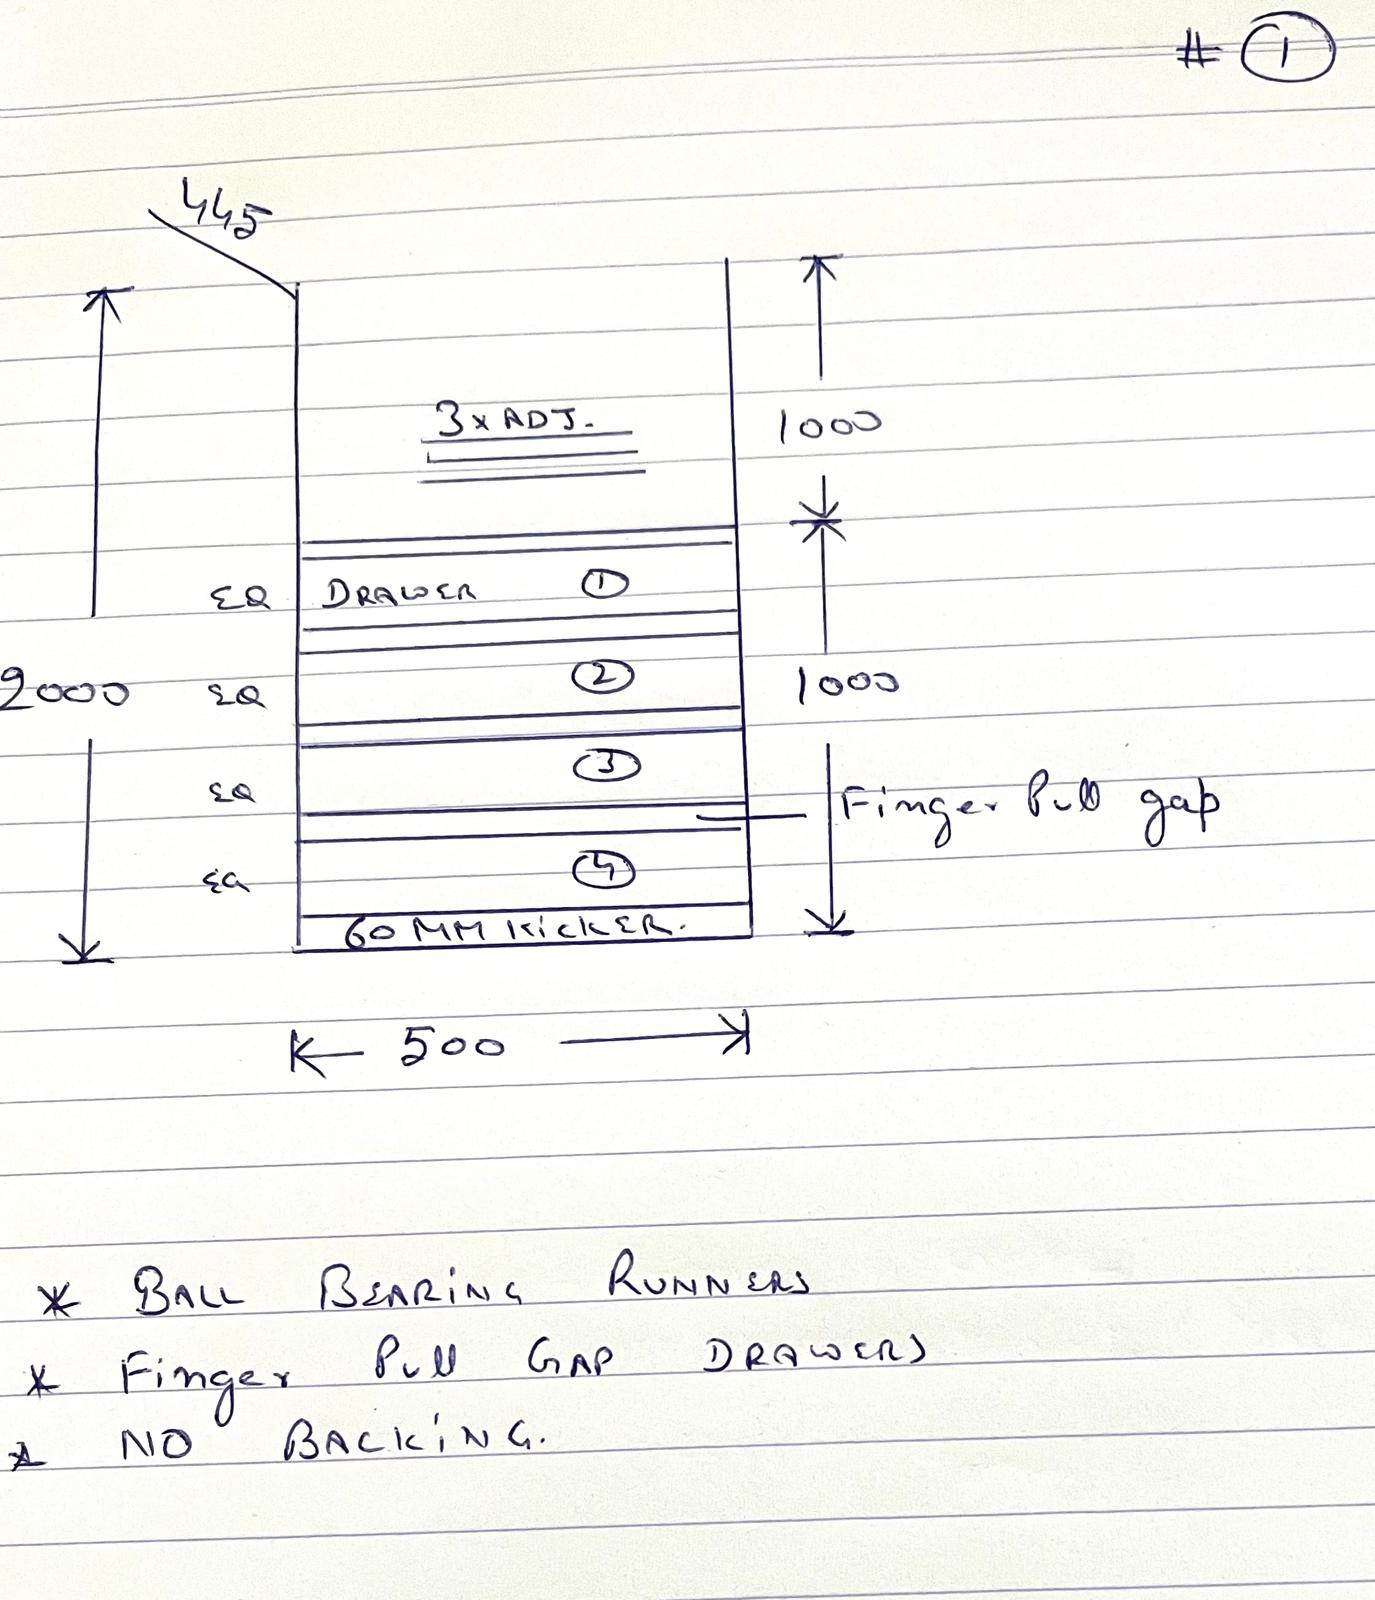 # 1
445
3 x ADJ.
1000
EQ DRAWER 1
2000 EQ 2 1000
EQ 3
Finger Pull gap
EQ 4
60 MM KICKER.
500
* BALL BEARING RUNNERS
* Finger Pull GAP DRAWERS
* NO BACKING.